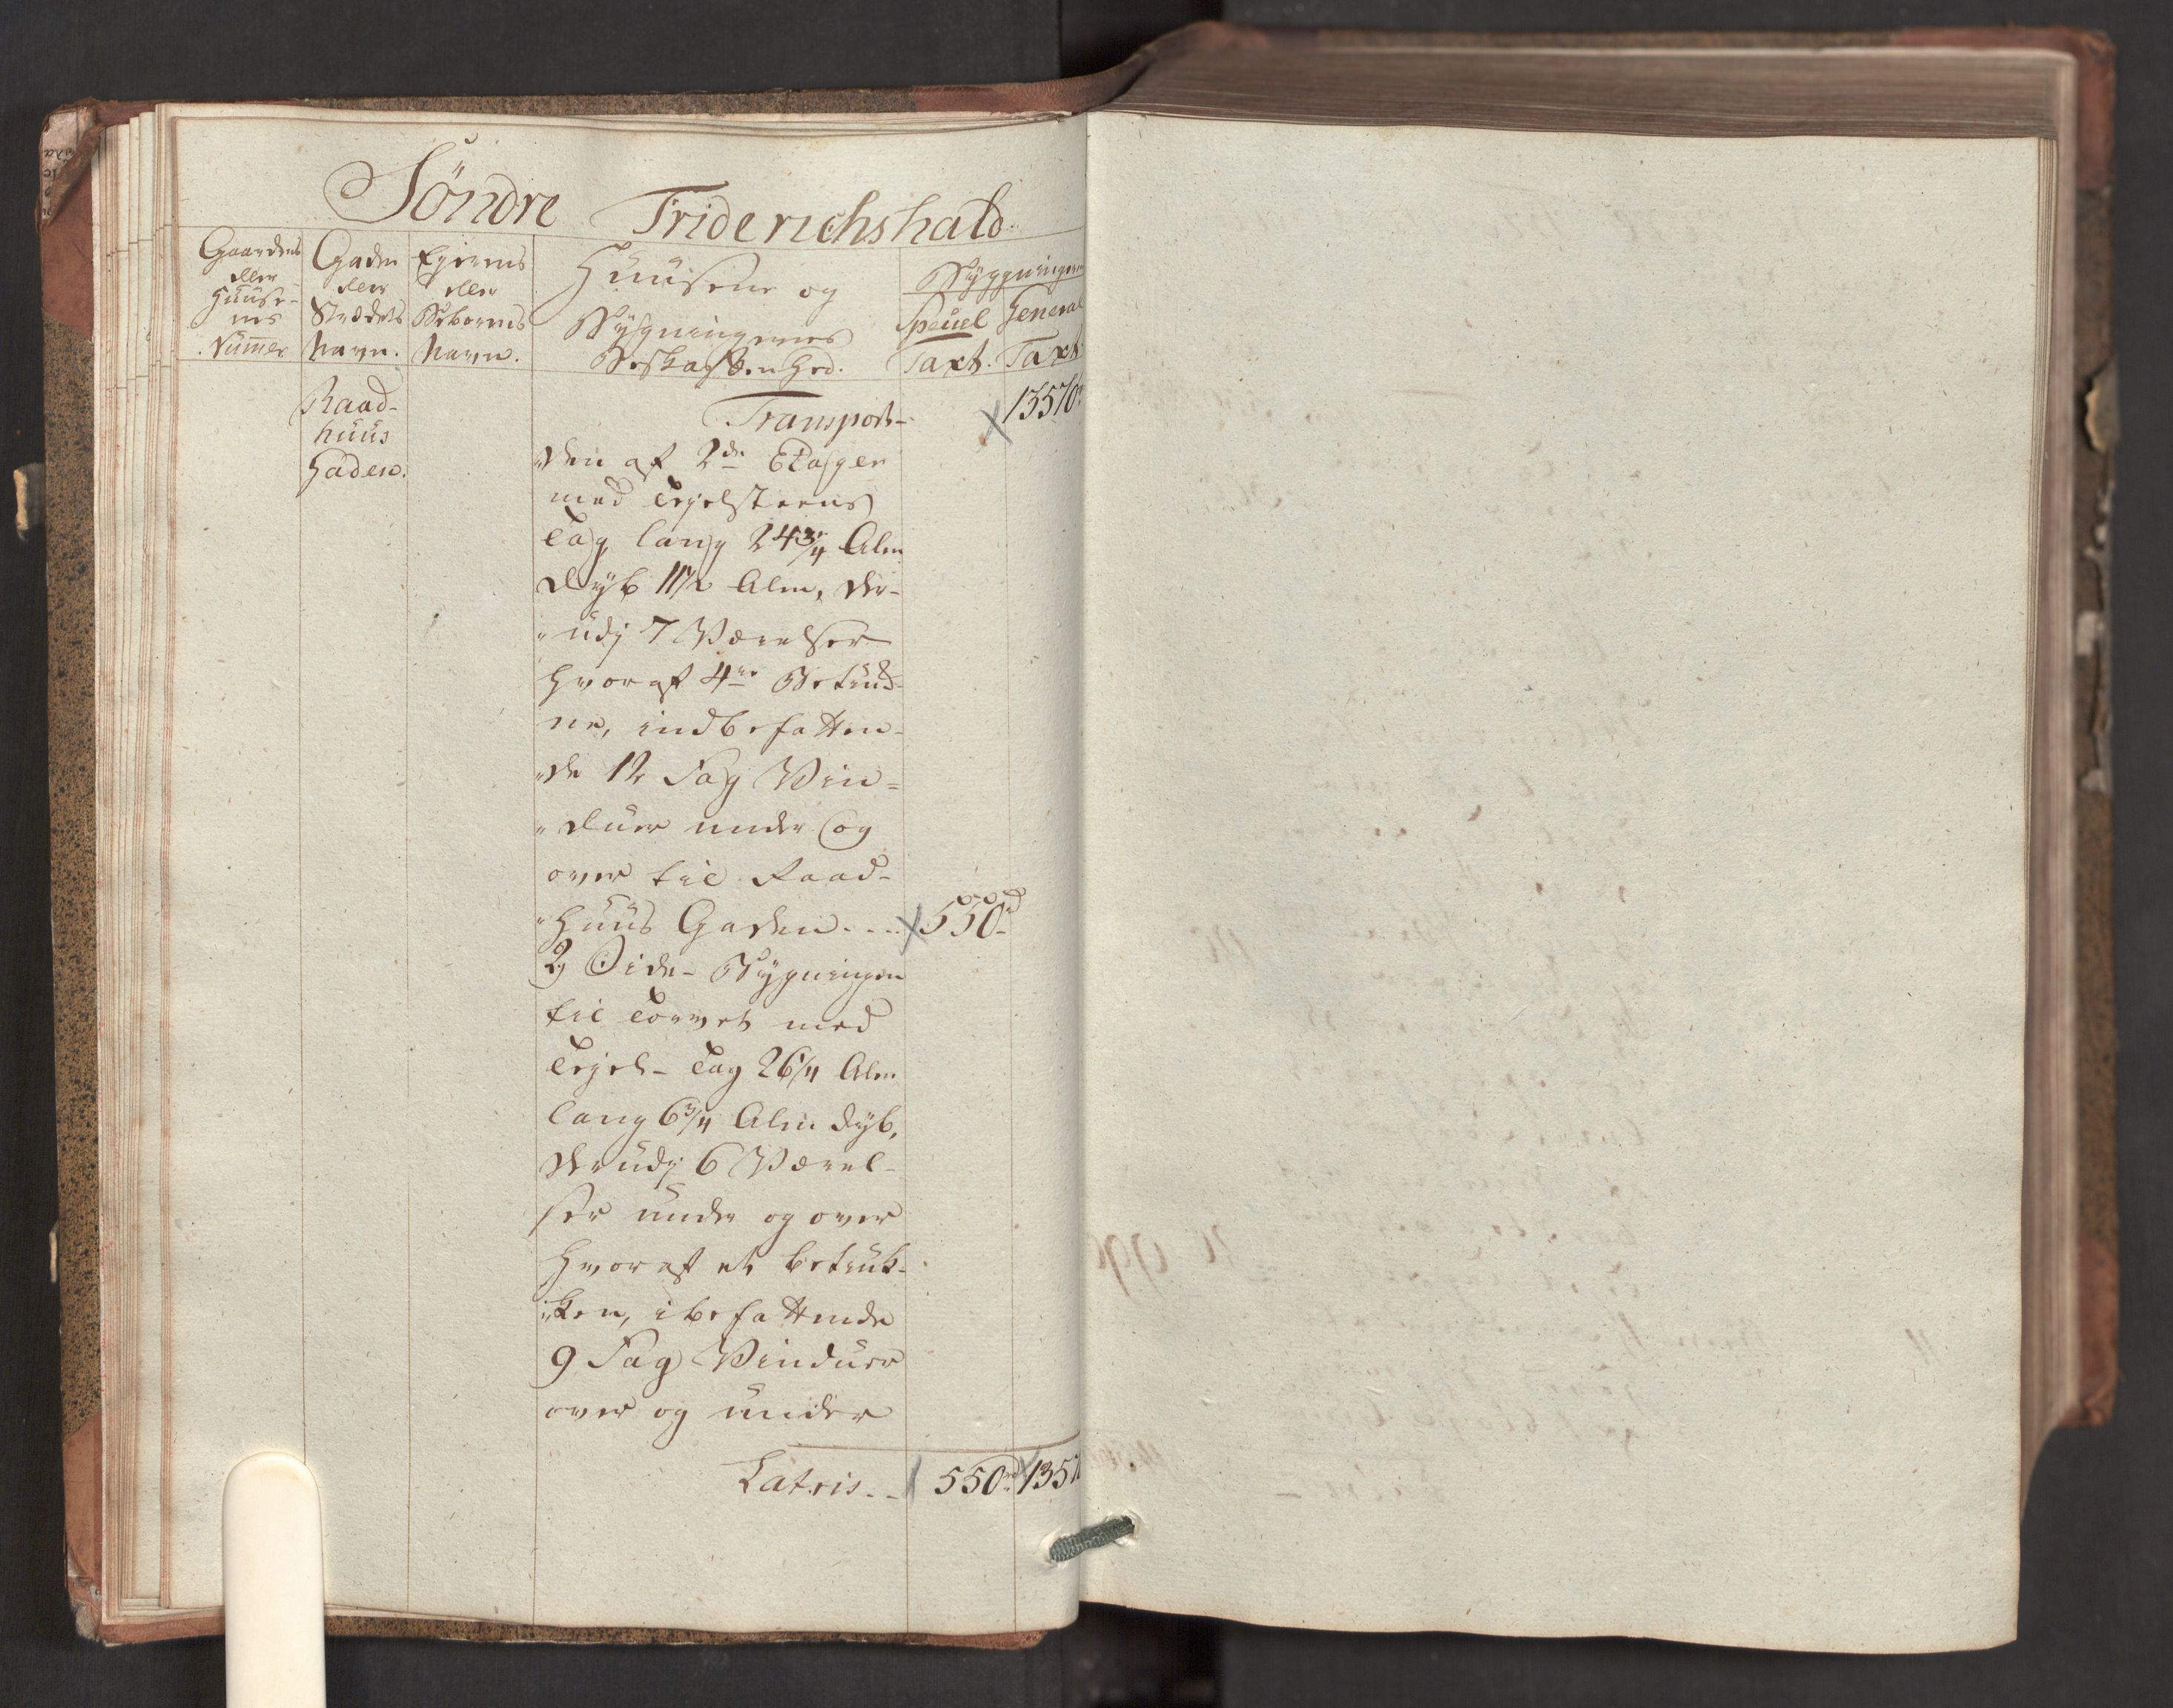 Söndre Friderichshald
Gaardens
eller
Huuse-
nes
Numer.
Gaden
eller
Strædets
Navn.
Ejerens
eller
Beboerens
Navn.
Huusene og
Bygningernes
Beskaffenhed.
Byggningernes
Speciel
Taxt.
General
Taxt
Raad-
huus
Gaden.
Transport- 13570
"den af 2de Etager
med Tegelsteens
Tag lang 24 3/4 Alen
dyb 11 1/2 Alen, der-
"udj 7 Værelser
hvoraf 4re Betruk-
ne, indbefatten-
"de 12 Fag Vin-
"duer under og
over til Raad-
"huus Gaden.... 550rd
2, Side- Bygningen
til Torvet med
Tegel- Tag 26 1/4 Alen
lang 6 3/4 Alen dyb,
derudj 6 Værel-
ser under og over
hvoraf et betruk-
"ken, ibefattende
9 Fag Vinduer
over og under
Latris.. 550rd 1357